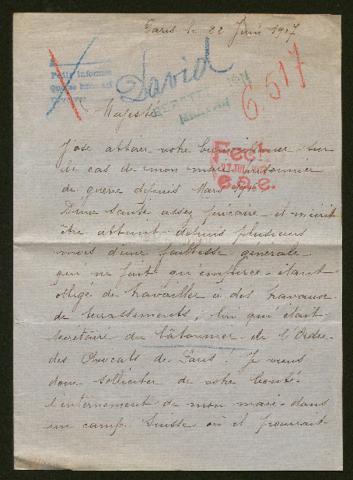 Paris le 22 Juin 1917
David
6.517
Pedir informes
Majesté
Fech
27 JUL
c.a.e.
J'ose attirer votre bienveillance sur
le cas de mon mari prisonnier
de guerre depuis Mars
D'une santé assez précaire et
être atteint depuis plusieurs
mois d'une faiblesse générale
qui ne fait qu'empirer - étant
obligé de travailler à des travaux
de terrassements, lui qui était
secrétaire du bâtonnier de l'Ordre
des Avocats de Paris. Je viens
donc solliciter de votre bonté
l'internement de mon mari dans
un camp Suisse où il pourrait